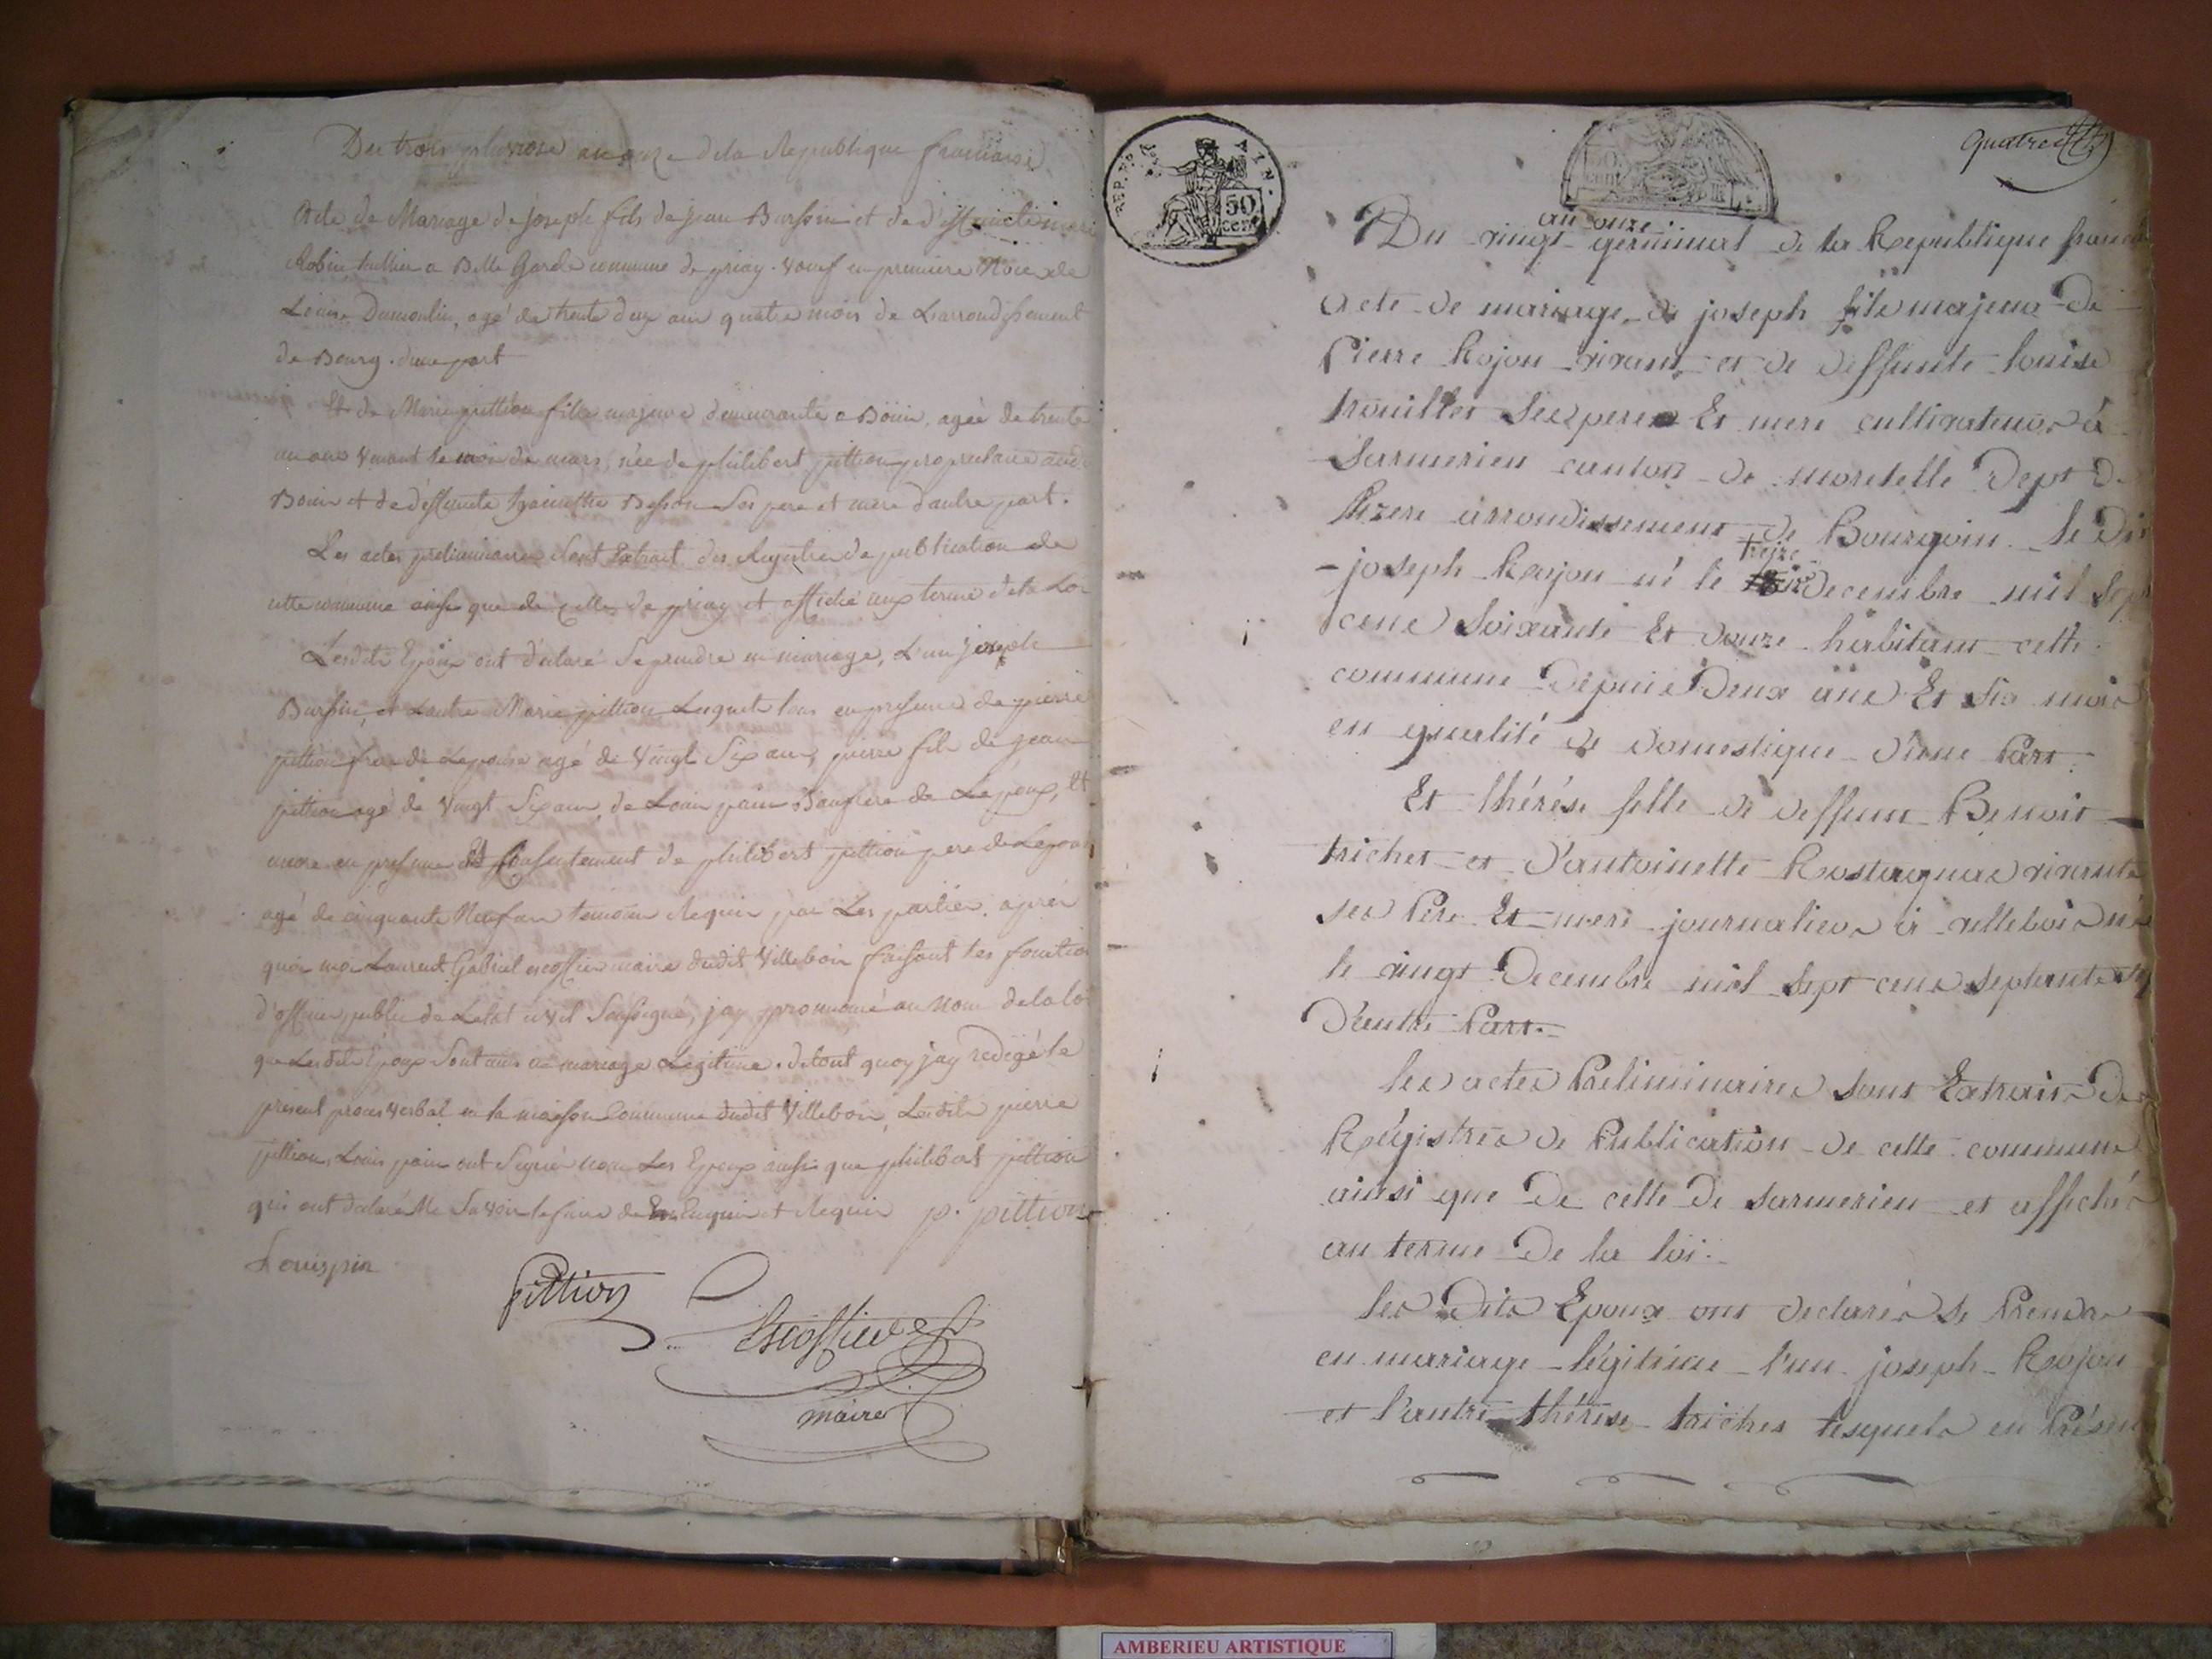 Du trois pluviose an onze de la Republique francaise
Acte de Mariage de joseph fils de jean Bursin et de deffuncte marie
Robin, tuillier a Belle Garde commune de priay. veuf en premiere Noce de
Louise Dumoulin, agé de trente deux ans quatre mois de L'arrondissement
de Bourg. d'une part
Et de Marie pittion fille majeure demeurante a Boüis, ageé de trente
un ans venant le mois de mars, née de philibert pittion propriétaire
Bouis et de deffuncte Besson Ses pere et mere d'autre part.
Les actes preliminaires Sont Extrait des Registres de publication de
cette commune ainsi que de celle de priay et affiché aux terme de la Loi
Lesdits Epoux ont déclaré Se prendre en mariage, L'un joseph
Bursin, et L'autre Marie pittion Lequels tous en presence de pierre
pittion frere de Lepouse agé de vingt Six ans, pierre fils de jean
pittion agé de vingt Six ans, de Louis pain Beaufrere de Lépoux, Et
encore en presence Et Consentement de philibert pittion pere de Lepouse
agé de cinquante Neuf ans temoins Requis par Les parties. après
quoi moi Laurent Gabriel escoffier maire dudit Villebois faisant les fonction
d'officier public de L'état civil Soussigné, jay prononcé au Nom de la loi
que Lesdits Epoux Sont unis en mariage Legitime. de tout quoy jay redigé le
present proces verbal en la maison Commune dudit Villebois, Lesdits pierre
pittion, Louis pain ont Signé non Les Epoux ainsi que philibert pittion
qui ont déclaré Ne Savoir le faire de Enquis et Requis p. pittion
Louispin
pittion
Escoffier
maire
REP. FRA. AIN.
50 cent
50 cent
quatre
an onze
Du vingt germinal de la Republique francaise
Acte de mariage de joseph fils majeur de
Pierre Rojon vivant et de deffunte louise
trouillet ses pere Et mere cultivateurs à
Sarmerieu canton de moretelle Dept de
lizere arrondissement de Bourgoin. le Dit
treize
joseph Rojon né le decembre mil Sept
cens Soixante Et douze habitant cette
commune Depuis Deux ans Et Six mois
en qualité de domestique d'une Part.
Et thérése fille de deffunt Benoit
trichet et d'antoinette Rostagnas vivante
ses Pere Et mere journaliers à villebois née
le vingt Decembre mil sept cens septente
D'autre Part.
les actes Preliminaires sont Extrait Des
Régistres de Publication de cette commune
ainsi que De celle De Sarmerieu et affiché
au terme De la loi.
les Dits Epoux ont declarés se Prendre
en mariage légitime l'un joseph Rojon
et l'autre thérése trichet lesquels en Présence
AMBERIEU ARTISTIQUE